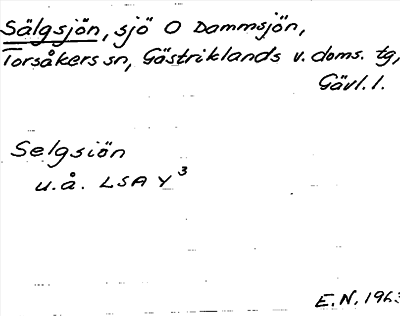 Sälgsjön, sjö O Dammsjön,
Torsåkers sn, Gästriklands v. doms. tg,
Gävl. l.
Selgsiön
u.å. LSA Y³
E.N. 1963